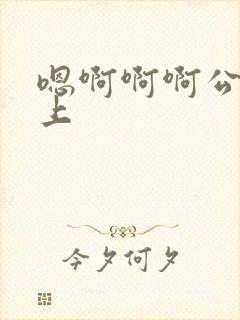 嗯啊啊啊公
上
今夕何夕